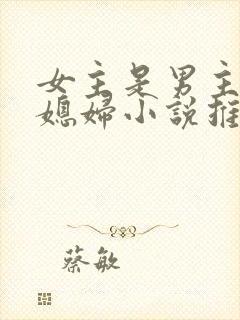 女主是男主
媳婦小說推
蔡敏